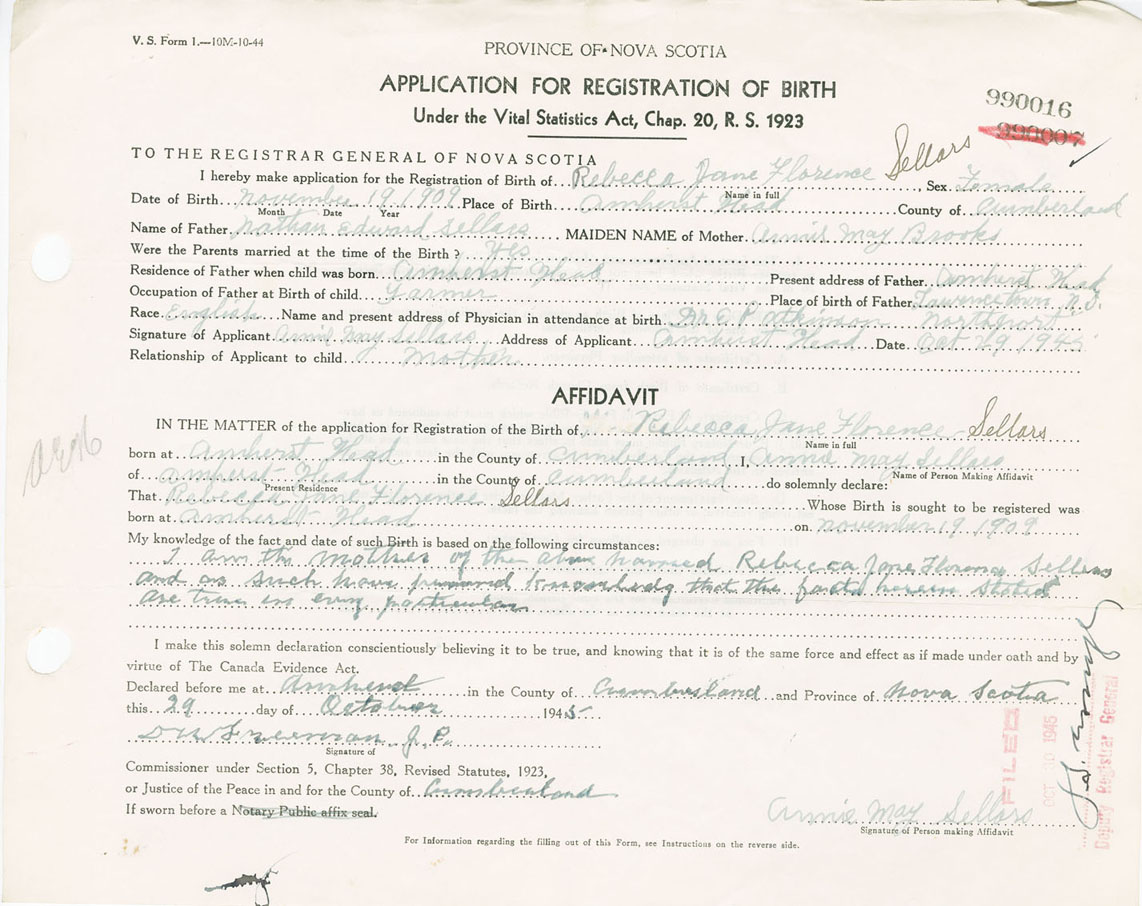 V. S. Form 1.—10M-10-44
PROVINCE OF NOVA SCOTIA
APPLICATION FOR REGISTRATION OF BIRTH
Under the Vital Statistics Act, Chap. 20, R. S. 1923
990016
990007
TO THE REGISTRAR GENERAL OF NOVA SCOTIA
I hereby make application for the Registration of Birth of Rebecca Jane Florence Sellars, Sex Female
Name in full
Date of Birth November 19, 1909 Place of Birth Amherst Head County of Cumberland
Month Date Year
Name of Father Nathan Edward Sellars MAIDEN NAME of Mother Annie May Brooks
Were the Parents married at the time of the Birth? Yes
Residence of Father when child was born Amherst Head Present address of Father Amherst Head
Occupation of Father at Birth of child Farmer Place of birth of Father Lawrencetown
Race English Name and present address of Physician in attendance at birth Dr C. P. Atkinson Northport
Signature of Applicant Annie May Sellars Address of Applicant Amherst Head Date Oct 29, 1945
Relationship of Applicant to child Mother
AFFIDAVIT
IN THE MATTER of the application for Registration of the Birth of Rebecca Jane Florence Sellars
Name in full
born at Amherst Head in the County of Cumberland I, Annie May Sellars
Name of Person Making Affidavit
of Amherst Head in the County of Cumberland do solemnly declare:
Present Residence
That Rebecca Jane Florence Sellars Whose Birth is sought to be registered was
born at Amherst Head on November 19, 1909
My knowledge of the fact and date of such Birth is based on the following circumstances:
I am the mother of the above named Rebecca Jane Florence Sellars
and as such have personal knowledg that the facts herein stated
are true in every particular
I make this solemn declaration conscientiously believing it to be true, and knowing that it is of the same force and effect as if made under oath and by
virtue of The Canada Evidence Act.
Declared before me at Amherst in the County of Cumberland and Province of Nova Scotia
this 29 day of October 1945
J. P.
Signature of
Commissioner under Section 5, Chapter 38, Revised Statutes, 1923,
or Justice of the Peace in and for the County of Cumberland
If sworn before a Notary Public affix seal.
Annie May Sellars
Signature of Person making Affidavit
FILED
OCT 30 1945
Deputy Registrar General
For Information regarding the filling out of this Form, see Instructions on the reverse side.